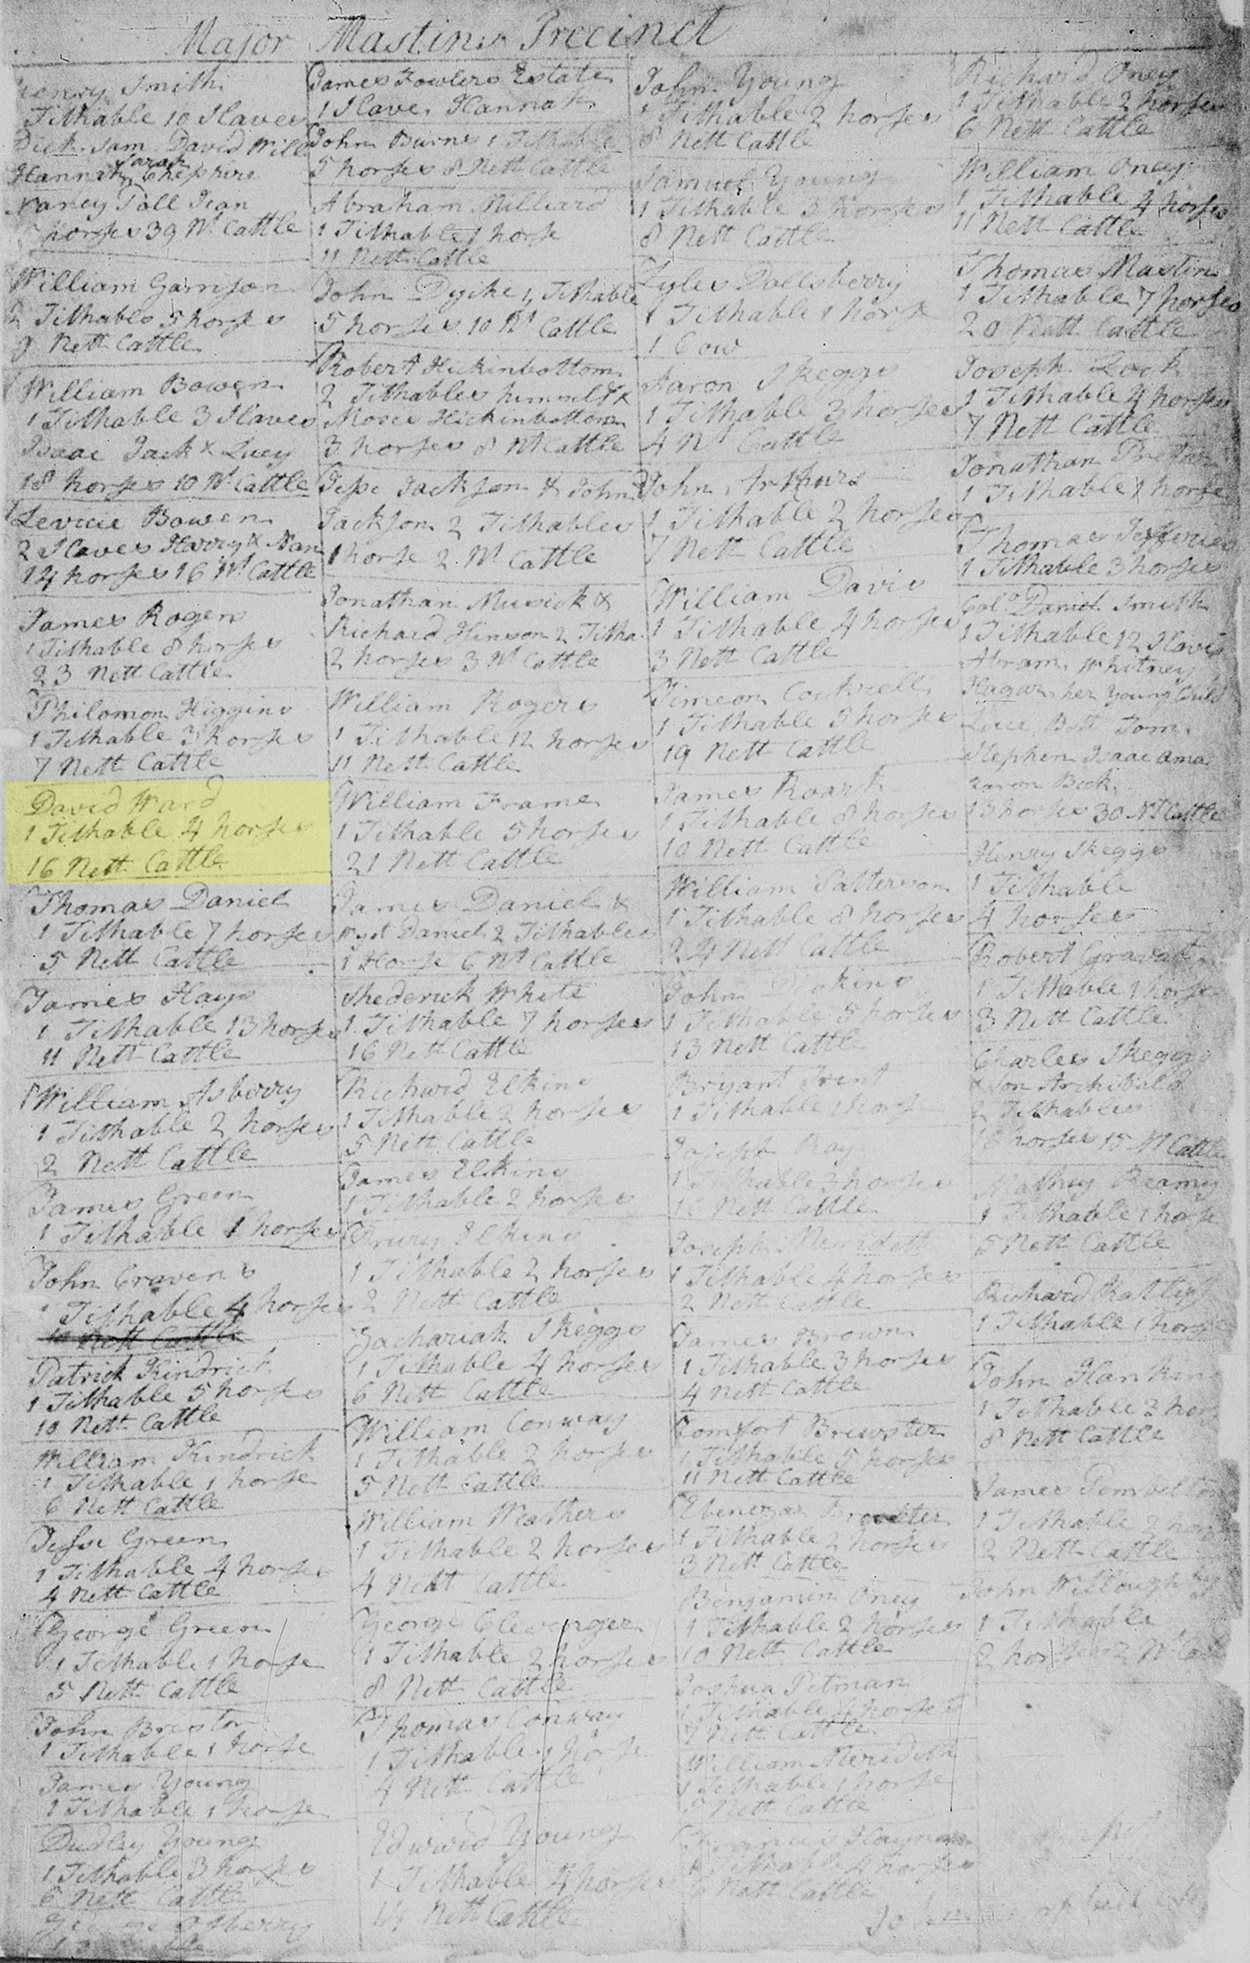 Major Mastins Precinct
Henry Smith
Tithable 10 Slaves
Dick Sam David Will
Sarah
Hannah Cheshire
Nancy Poll Jean
horses 39 Nt Cattle
William Garrison
2 Tithables 5 horses
9 Nett Cattle
William Bowen
1 Tithable 3 Slaves
Isaac Jack & Lucy
18 horses 10 Nt Cattle
Levicie Bowen
2 Slaves Harry & Nan
14 horses 16 Nt Cattle
James Rogers
1 Tithable 8 horses
23 Nett Cattle
Philomon Higgins
1 Tithable 3 horses
7 Nett Cattle
David Ward
1 Tithable 4 horses
16 Nett Cattle
Thomas Daniel
1 Tithable 7 horses
5 Nett Cattle
James Hays
1 Tithable 13 horses
11 Nett Cattle
William Asberry
1 Tithable 2 horses
2 Nett Cattle
James Green
1 Tithable 1 horses
John Cravens
1 Tithable 4 horses
10 Nett Cattle
Patrick Kindrick
1 Tithable 5 horses
10 Nett Cattle
William Kindrick
1 Tithable 1 horse
6 Nett Cattle
Jesse Green
1 Tithable 4 horses
4 Nett Cattle
George Green
1 Tithable 1 horse
5 Nett Cattle
John Breston
1 Tithable 1 horse
James Young
1 Tithable 1 horse
Dudley Young
1 Tithable 3 horses
6 Nett Cattle
Asberry
James Fowlers Estate
1 Slave Hannah
John Burns 1 Tithable
5 horses 8 Nett Cattle
Abraham Milliard
1 Tithable 1 horse
11 Nett Cattle
John Dyche 1 Tithable
5 horses 10 Nt Cattle
Robert Hickinbottom
2 Tithables himself &
Moses Hickinbottom
3 horses 8 Nt Cattle
Jesse Jackson & John
Jackson 2 Tithables
1 horse 2 Nt Cattle
Jonathan Musick &
Richard Hinson 2 Titha
2 horses 3 Nt Cattle
William Rogers
1 Tithable 12 horses
11 Nett Cattle
William Frame
1 Tithable 5 horses
21 Nett Cattle
James Daniel &
Daniel 2 Tithables
1 Horse 6 Nt Cattle
Shederick White
1 Tithable 7 horses
16 Nett Cattle
Richard Elkins
1 Tithable 2 horses
5 Nett Cattle
James Elkins
1 Tithable 2 horses
Drury Elkins
1 Tithable 2 horses
2 Nett Cattle
Zachariah Skeggs
1 Tithable 4 horses
6 Nett Cattle
William Conway
1 Tithable 2 horses
5 Nett Cattle
William Weathers
1 Tithable 2 horses
4 Nett Cattle
George Clevenger
1 Tithable 2 horses
8 Nett Cattle
Thomas Conway
1 Tithable 1 horse
4 Nett Cattle
Edward Young
1 Tithable 4 horses
14 Nett Cattle
John Young
1 Tithable 2 horses
8 Nett Cattle
Samuel Young
1 Tithable 3 horses
8 Nett Cattle
Lyles Dollsberry
1 Tithable 1 horse
1 Cow
Aaron Skeggs
1 Tithable 3 horses
4 Nt Cattle
John Arthurs
1 Tithable 2 horses
7 Nett Cattle
William Davis
1 Tithable 4 horses
3 Nett Cattle
Simeon Cockrell
1 Tithable 5 horses
19 Nett Cattle
James Roark
1 Tithable 8 horses
10 Nett Cattle
William Patterson
1 Tithable 8 horses
24 Nett Cattle
John
1 Tithable 5 horses
13 Nett Cattle
Bryant Trent
1 Tithable 1 horse
Joseph Ray
1 Tithable 3 horses
16 Nett Cattle
Joseph Meridett
1 Tithable 4 horses
2 Nett Cattle
James Brown
1 Tithable 3 horses
4 Nett Cattle
Comfort Brewster
1 Tithable 5 horses
11 Nett Cattle
Ebenezar Brewster
1 Tithable 2 horses
3 Nett Cattle
Benjamin Oney
1 Tithable 2 horses
10 Nett Cattle
Joshua Pitman
1 Tithable 4 horses
7 Nett Cattle
William Meredith
1 Tithable 1 horse
5 Nett Cattle
Francis
1 Tithable 4 horses
6 Nett Cattle
Richard Oney
1 Tithable 2 horses
6 Nett Cattle
William Oney
1 Tithable 4 horses
11 Nett Cattle
Thomas Mastin
1 Tithable 7 horses
20 Nett Cattle
Joseph Lock
1 Tithable 4 horses
7 Nett Cattle
Jonathan
1 Tithable 1 horse
Thomas Jefferies
1 Tithable 3 horses
Colo Daniel Smith
1 Tithable 12 Slaves
Abram Whitney
Hagar her Young Child
Luce Bett Tom
Stephen Isaac Ama
Aaron Beck
13 horses 30 Nt Cattle
Henry Skeggs
1 Tithable
4 horses
Robert Gravat
1 Tithable 1 horse
3 Nett Cattle
Charles Skeggs
& Son Archibald
2 Tithables
18 horses 15 Nt Cattle
Mathey Reamy
1 Tithable 1 horse
5 Nett Cattle
Richard Ratliff
1 Tithable 1 horse
John Hankins
1 Tithable 3 hors
8 Nett Cattle
James Pembelton
1 Tithable 2 hors
2 Nett Cattle
John Willoughby
1 Tithable
2 horses 2 Nt Catt